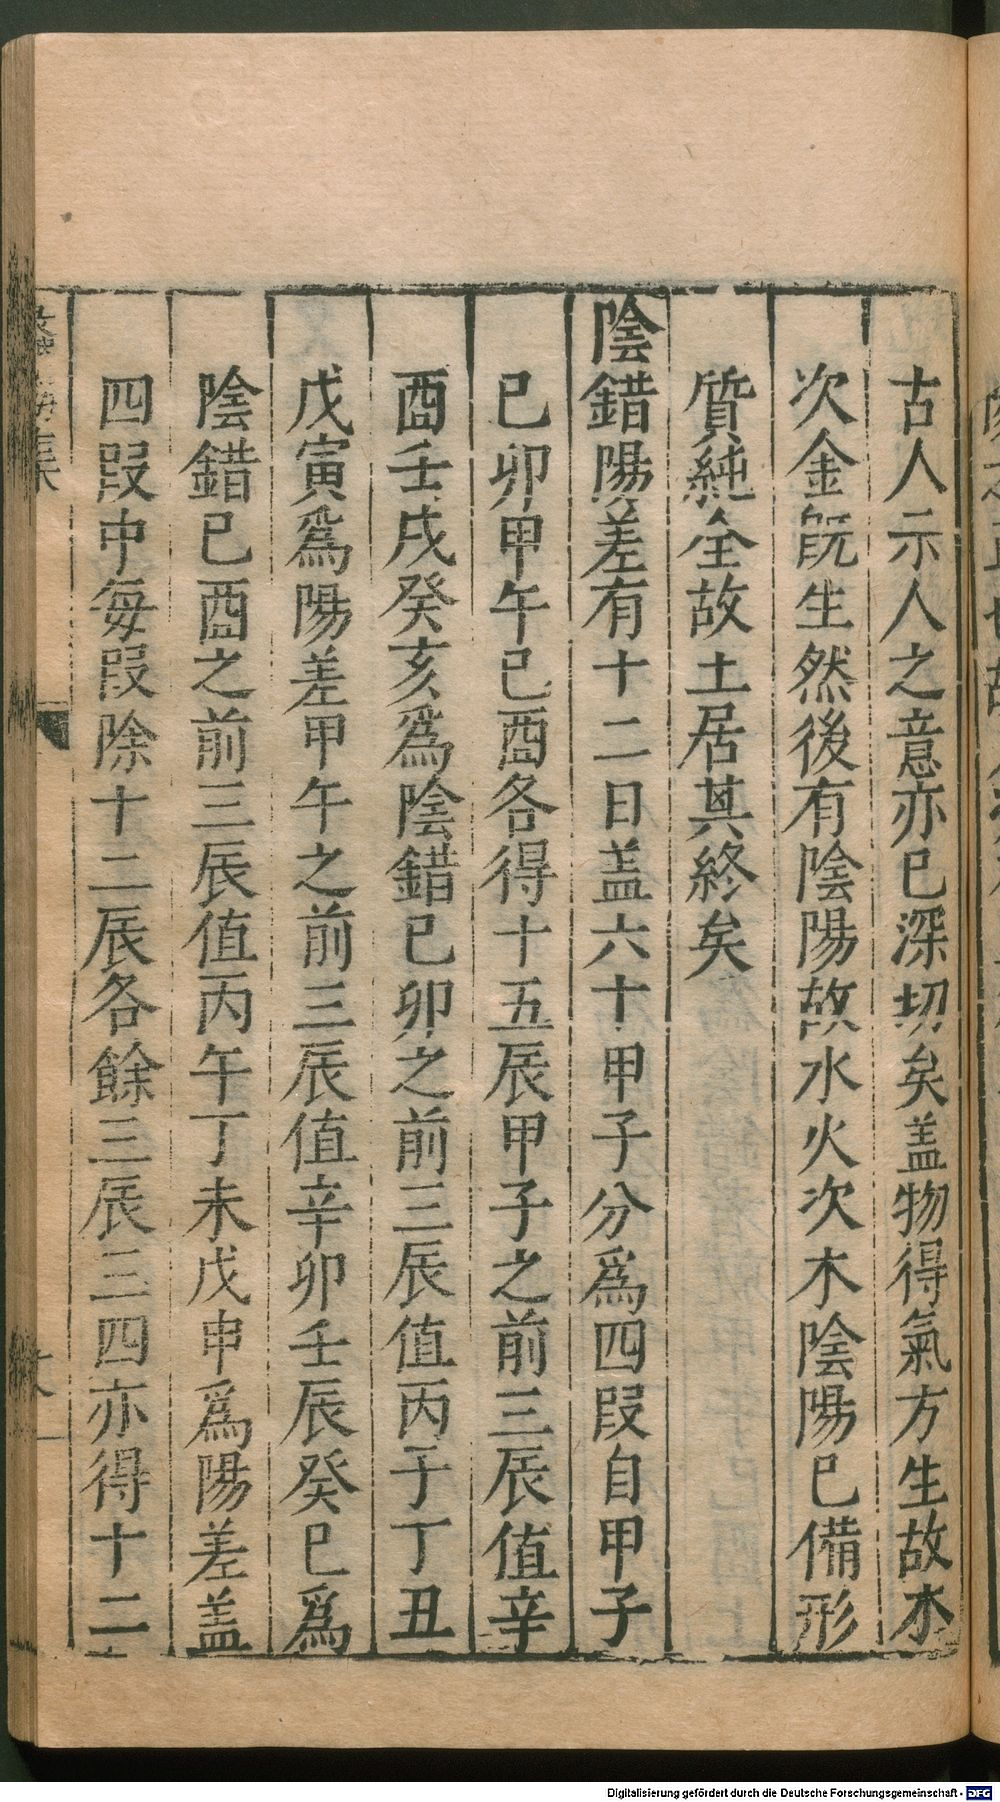 古人示人之意亦已深切矣盖物得氣方生故木
次金旣生然後有陰陽故水火次木陰陽已備形
質純全故土居其終矣
陰錯陽差有十二日盖六十甲子分爲四叚自甲子
己卯甲午己酉各得十五辰甲子之前三辰值辛
酉壬戌癸亥爲陰錯己卯之前三辰值丙子丁丑
戊寅爲陽差甲午之前三辰值辛卯壬辰癸巳爲
陰錯己酉之前三辰值丙午丁未戊申爲陽差盖
四叚中每叚除十二辰各餘三辰三四亦得十二
Digitalisierung gefördert durch die Deutsche Forschungsgemeinschaft - DFG